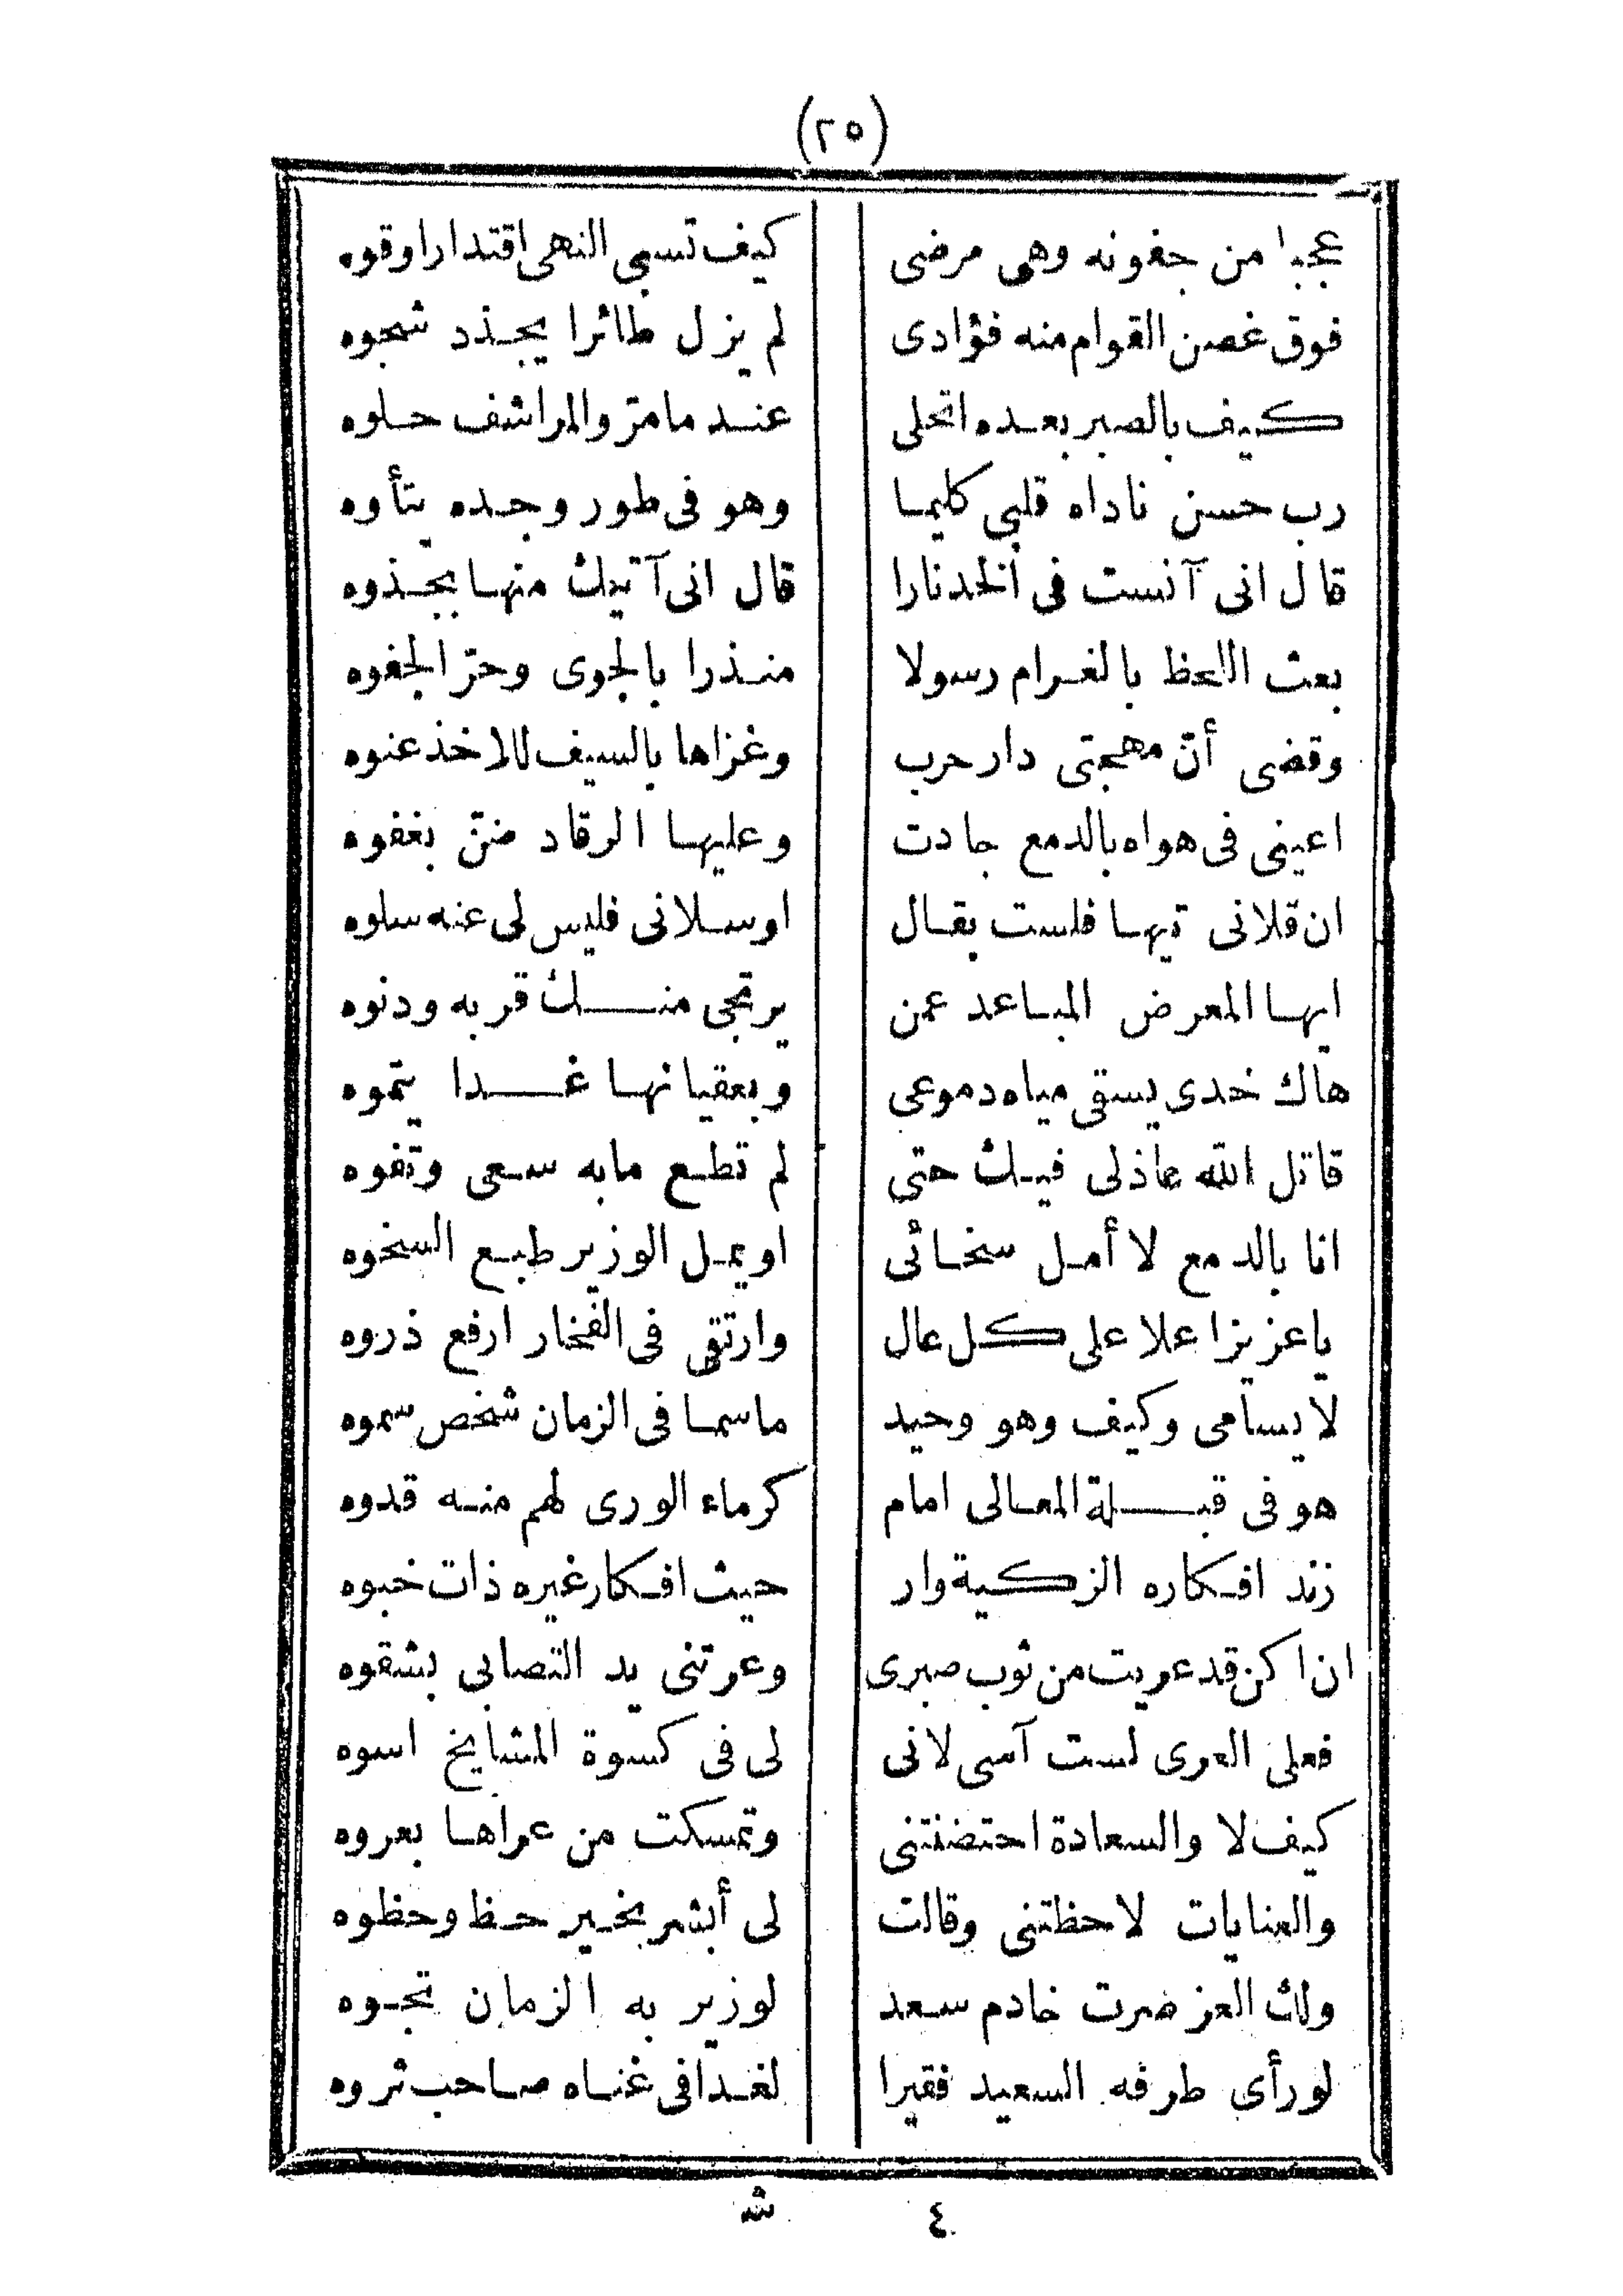 (٢٥)
عجبا من جفونه وهى مرضى كيف تسبى النهى اقتدارا وقوه
فوق غصن القوام منه فؤادى لم يزل طائرا يجذد شجوه
كيف بالصبر بعده اتحلى عند ما مرّ والمراشف حلوه
رب حسن ناداه قلبى كليما وهو فى طور وجده يتأوه
قال انى آنست فى الخد نارا قال انى آتيك منها بجذوه
بعث اللحظ بالغرام رسولا منذرا بالجوى وحرّ الجفوه
وقضى أنّ مهجتى دار حرب وغزاها بالسيف للاخذ عنوه
اعينى فى هواه بالدمع جادت وعليها الرقاد ضنّ بغفوه
ان قلانى تيها فلست بقال اوسلانى فليس لى عنه سلوه
ايها المعرض المباعد عمن يرتجى منك قربه ودنوه
هاك خدى يسقى مياه دموعى وبعقيانها غدا يتموه
قاتل الله عاذلى فيك حتى لم تطع مابه سعى وتفوه
انا بالدمع لا أمل سخائى او يمل الوزير طبع السخوه
يا عزيزا علا على كل عال وارتقى فى الفخار ارفع ذروه
لا يسامى وكيف وهو وحيد ماسما فى الزمان شخص سموه
هو فى قبلة المعالى امام كرماء الورى لهم منه قدوه
زند افكاره الزكية وار حيث افكار غيره ذات خبوه
ان اكن قد عريت من ثوب صبرى وعرتنى يد التصابى بشقوه
فعلى العرى لست آسى لانى لى فى كسوة المشايخ اسوه
كيف لا والسعادة احتضنتنى وتمسكت من عراها بعروه
والعنايات لاحظتنى وقالت لى أبشر بخير حظ وحظوه
ولك العز صرت خادم سعد لوزير به الزمان تجوه
لو رأى طرفه السعيد فقيرا لغدا فى غناه صاحب ثروه
٤ ش